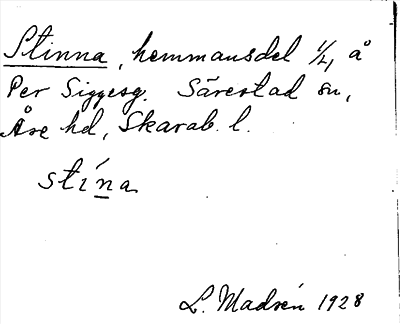 Stinna, hemmansdel 1/4, å
Per Siggesg. Särestad sn,
Åse hd, Skarab. l.
stína
L. Madsén 1928